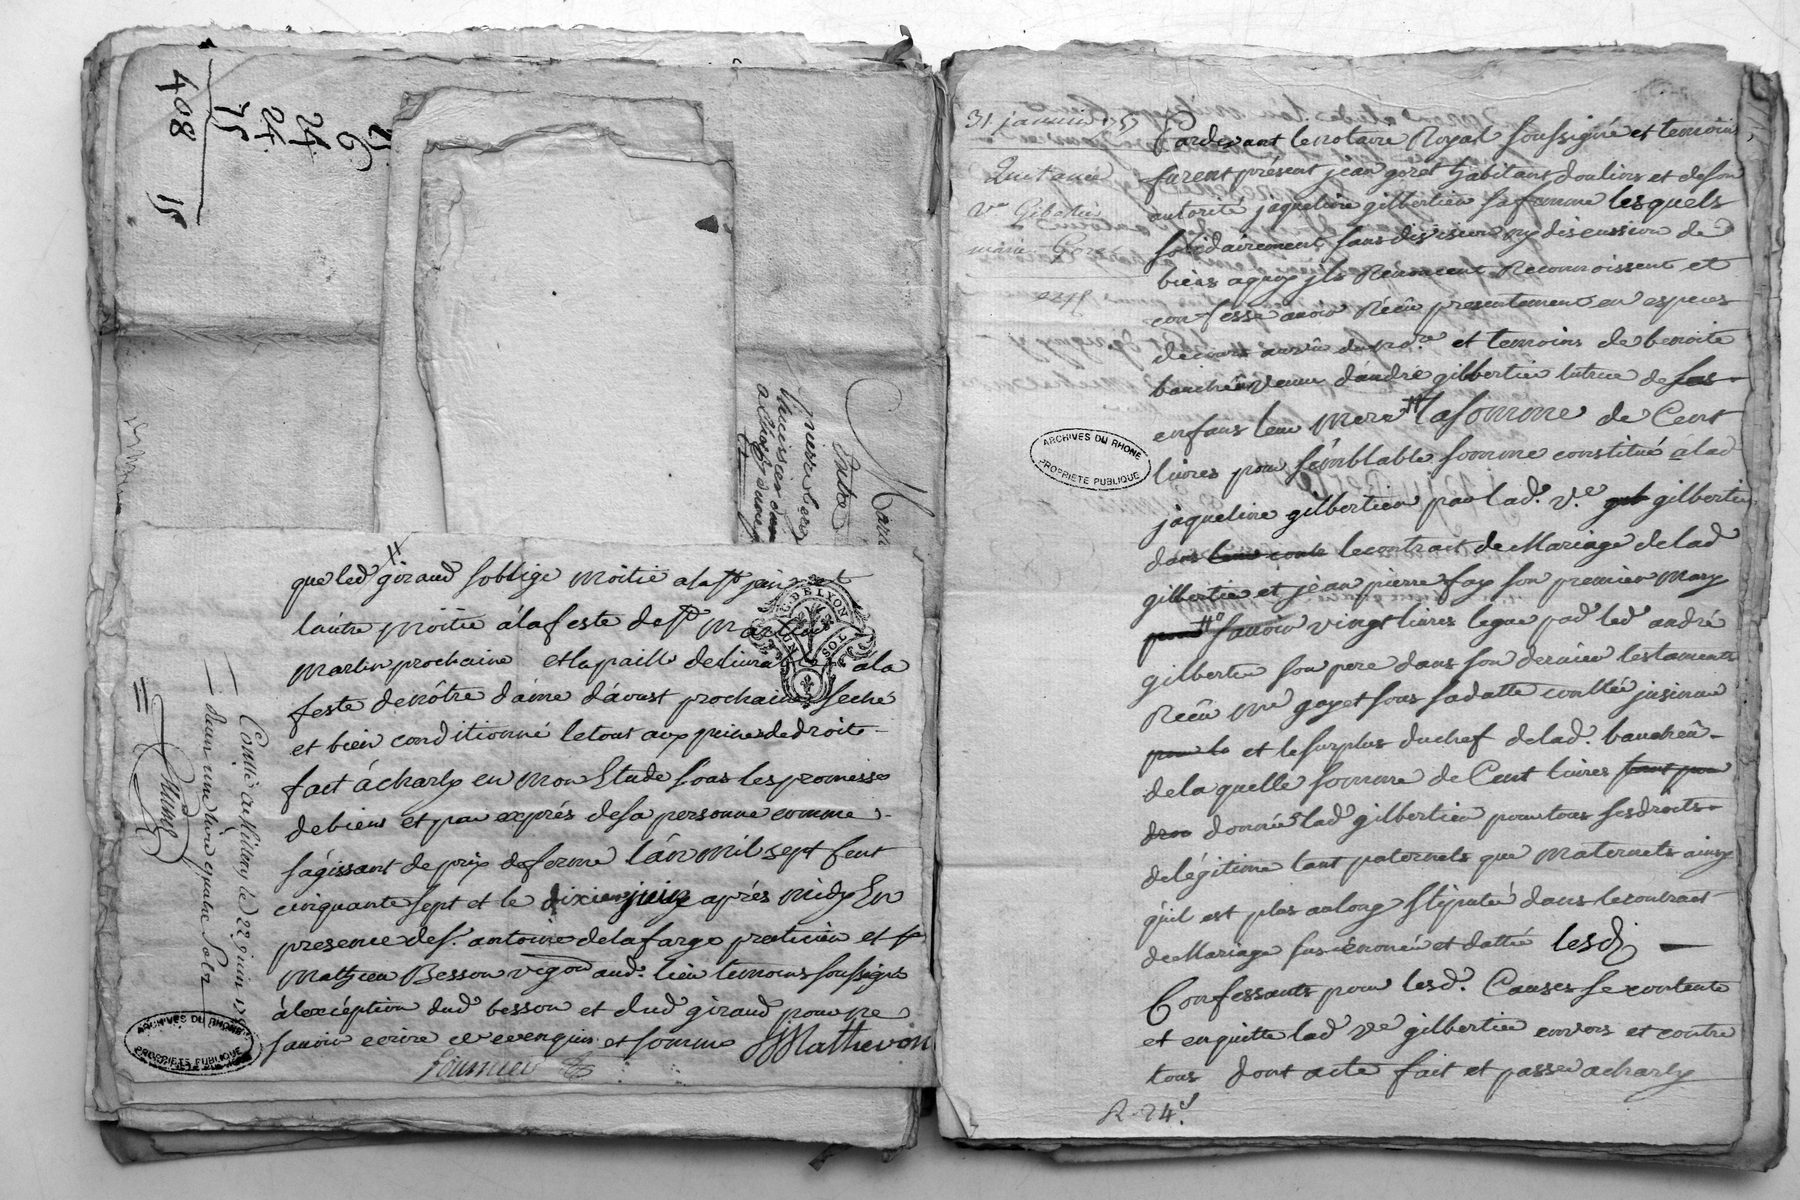 16
24
24
75
408 15
Entre
que led giraud soblige moitié a la st jean et
lautre moitié á la feste de st martin
martin prochaine et la paille de livra a la
feste de nôtre dame d'avoust prochaine seché
et bien conditionné le tout aux peines de droits
fait á charly en mon Etude sous les promesses
de biens et par exprés de sa personne comme
s'agissant de prix de ferme l'an mil sept Cent
cinquante sept et le dixieme juin aprés midy En
presence de sr. antoine delafarge praticien et sr
Mathieu Besson vigon aud. lieu temoins soussignés
á lexception dud besson et dud giraud pour ne
savoir ecrire de ce enquis et sommé Mathevon
fournier
Conllé a Millery le 22 juin
ARCHIVES DU RHONE
PROPRIETE PUBLIQUE
G. DE LYON
SOL
31 janvier 1757
Quittance
Ve Gilbertier
Goret
Pardevant le notaire Royal soussigné et temoins
furent présent jean goret habitant doulins et de son
autorité jaqueline gilbertier sa femme lesquels
solidairement sans division ny discussion de
biens a quoy ils Renoncent Reconnoissent et
confesse avoir Reçu presentement en especes
de cours au vû du nore et temoins de benoite
bauchû veuve d'andré gilbertier tutrice de ses
enfans leur mere la somme de Cent
livres pour semblable somme constitué à lad
jaqueline gilbertier par lad. ve. gilbertier
dans le contrat de Mariage de lad
gilbertier et jean pierre fay son premier mary
savoir vingt livres legué par led andré
gilbertier son pere dans son dernier testament
Reçu me gayet sous sa datte conllé insinué
et le surplus du chef de lad. bauchû
de la quelle somme de Cent livres
donné lad gilbertier pour tous ses droits
de légitime tant paternels que maternels ainsy
quil est plus aulong stipulé dans le contrat
de Mariage sus énoncé et datté lesd
Confessants pour lesd. Causes se contente
et en quitte lad ve gilbertier envers et contre
tous dont acte fait et passé a charly
R. 24 s
ARCHIVES DU RHONE
PROPRIETE PUBLIQUE